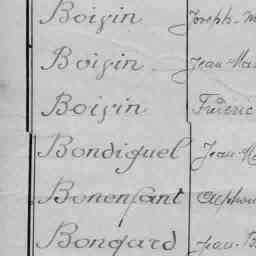 Boisin Joseph-M
Boisin Jean-Mar
Boisin Fréderic
Bondiguel Jean-Ma
Bonenfant Alphon
Bongard Jean-B